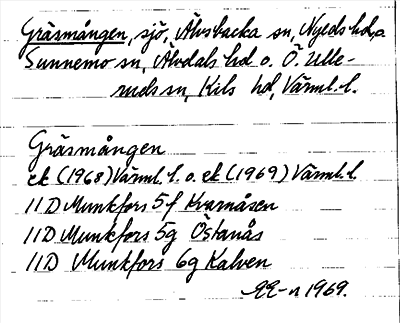 Gräsmången, sjö, Älvsbacka sn, Nyeds hd, o
Sunnemo sn, Älvdals hd o. Ö. Ulle-
ruds sn, Kils hd, Värml. l.
Gräsmången
ek (1968) Värml. l. o. ek (1969) Värml. l.
11D Munkfors 5f Kvarnåsen
11D Munkfors 5g Östanås
11D Munkfors 6g Kalven
1969.